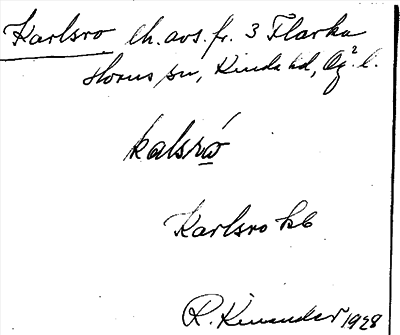 Karlsro lh. avs. fr. 3 Flarka
Horns sn, Kinda hd, Ög. l.
kalsró
Karlsro hb
R. Kinander 1928